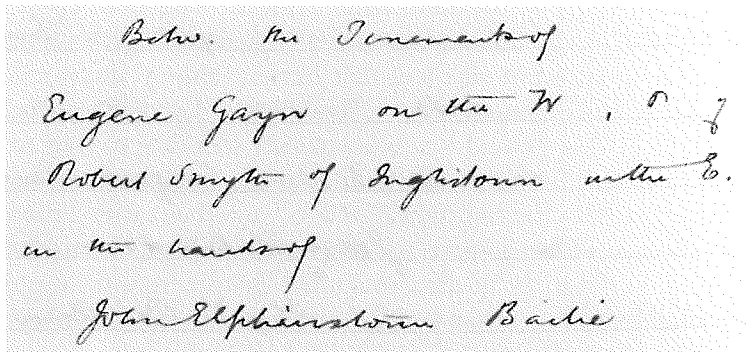 Betw. the Tenements of
Eugene Gayn on the W, & of
Robert Smyth of Inglistoun on the E.
in the hands of
John Elphinstoun Bailie